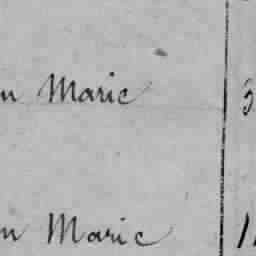 n Marie
n Marie